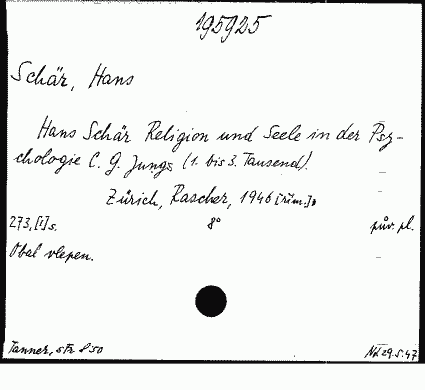 195925
Schär, Hans
Hans Schär Religion und Seele in der Psy-
chologie C. G. Jungs (1. bis 3. Tausend).
Zürich, Rascher, 1946 [řím.]
273, [1] s. 8° pův. pl.
Obal vlepen.
Tanner, sfr 8 50 29.5.47